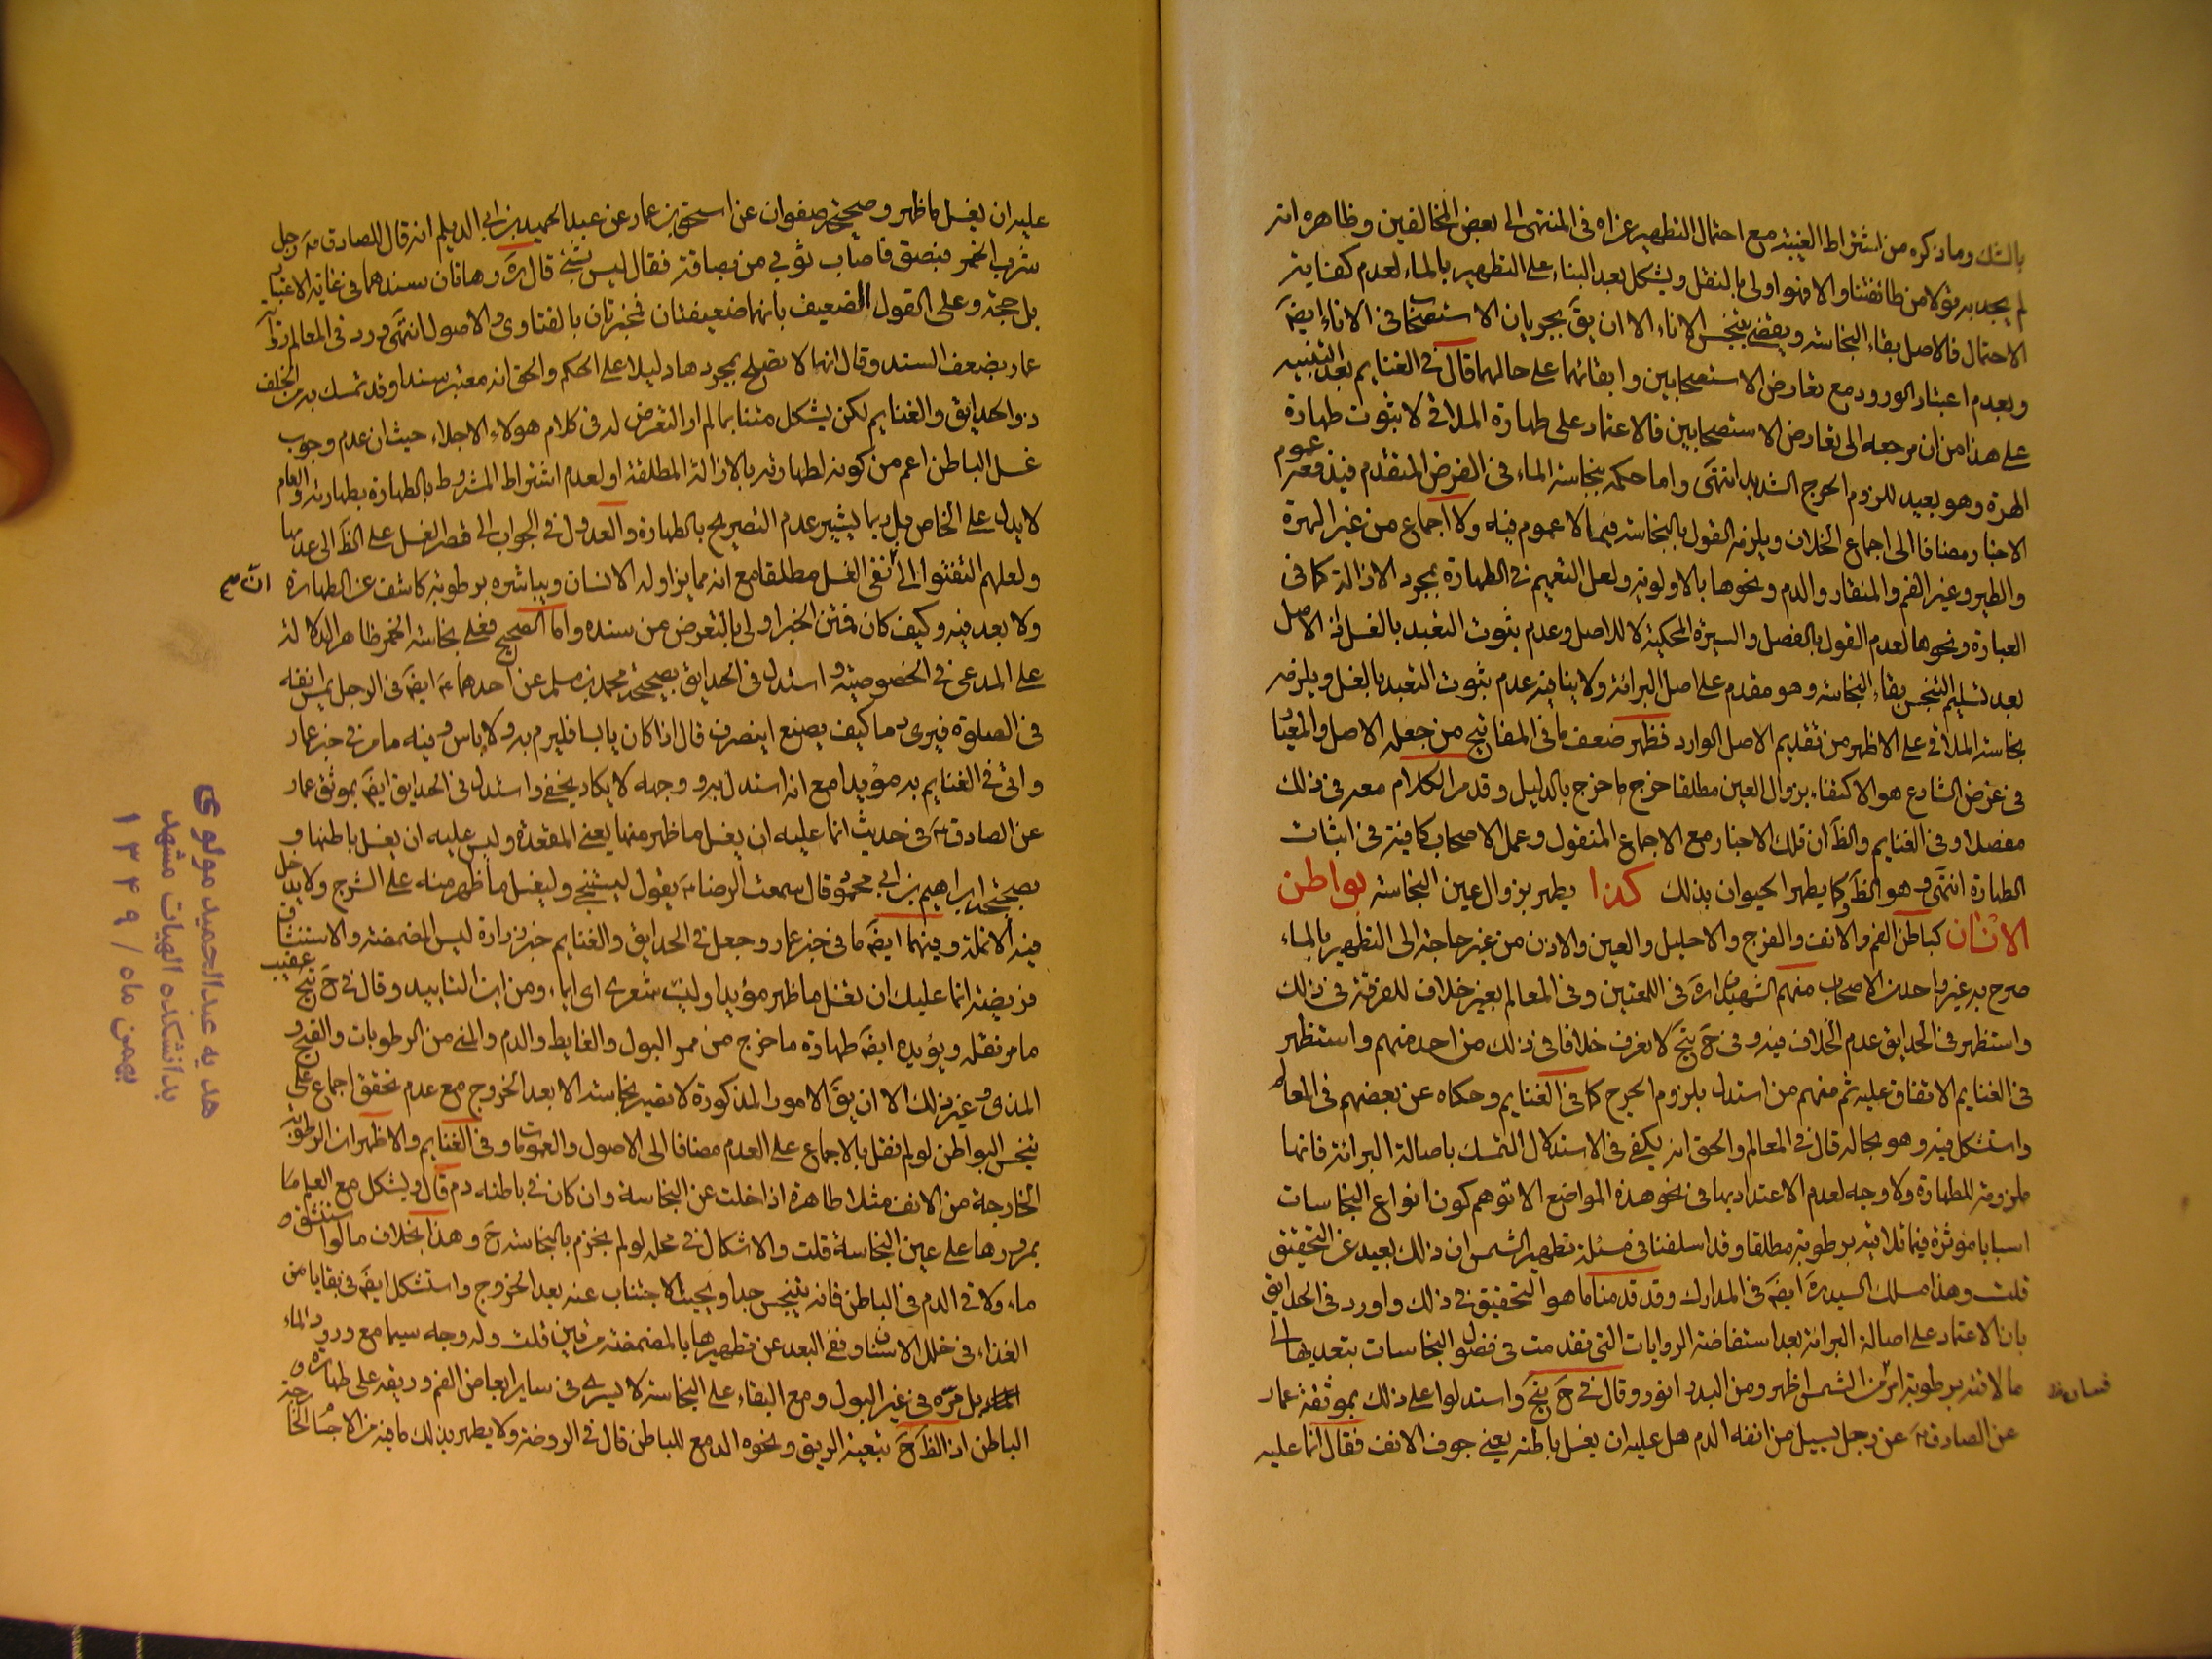 بالشك وما ذكره من اشتراط الغيبة مع احتمال التطهير عزاه فى المنتهى الى بعض المخالفين وظاهره انه
لم يجد به قولا من طائفتنا والا فهو اولى بالنقل ويشكل بعد البناء على التطهير بالماء لعدم كفاية
الاحتمال فالاصل بقاء النجاسة ويقضى بتنجس الاناء الا ان يقَ بجريان الاستصحاب فى الاناء ايضَ
وبعدم اعتبار الورود مع تعارض الاستصحابين وابقائهما على حالهما قال فى الغنايم بعد التنبيه
على هذا من ان مرجعه الى تعارض الاستصحابين فالاعتماد على طهارة الملاقى لا بثبوت طهارة
الهرة وهو بعيد للزوم الحرج الشديد انتهى واما حكمه بنجاسة الماء فى الفرض المتقدم فيدفعه عموم
الاخبار مضافا الى اجماع الخلاف ويلزمه القول بالنجاسة فيما لا عموم فيه ولا اجماع من غير الهرة
والطير وغير الفم والمنقار والدم ونحوها بالاولوية ولعل التعميم فى الطهارة بمجرد الازالة كما فى
العبارة ونحوها لعدم القول بالفصل والسيرة المحكية لا للاصل وعدم ثبوت التعبد بالغسل اذ الاصل
بعد تسليم التنجس بقاء النجاسة وهو مقدم على اصل البرائة ولا ينافيه عدم ثبوت التعبد بالغسل ويلزمه
نجاسة الملاقى على الاظهر من تقديم الاصل الوارد فظهر ضعف ما فى المفاتيح من جعله الاصل والمعيار
فى غرض الشارع هو الاكتفاء بزوال العين مطلقا خرج ما خرج بالدليل وقد مر الكلام معه فى ذلك
مفصلا وفى الغنايم والظَ ان تلك الاخبار مع الاجماع المنقول وعمل الاصحاب كافية فى اثبات
الطهارة انتهى وهو الظَ وكما يطهر الحيوان بذلك كذا يطهر بزوال عين النجاسة بواطن
الانسان كباطن الفم والانف والفرج والاحليل والعين والاذن من غير حاجة الى التطهير بالماء
صرح به غير واحد من الاصحاب منهم الشهيدان رَه فى اللمعتين وفى المعالم بغير خلاف للفرقة فى ذلك
واستظهر فى الحدايق عدم الخلاف فيه وفى حَ يَجَ لا نعرف خلافا فى ذلك من احد منهم واستظهر
فى الغنايم الاتفاق عليه ثم منهم من استدل بلزوم الحرج كما فى الغنايم وحكاه عن بعضهم فى المعالم
واستشكل فيه وهو بحاله قال فى المعالم والحق انه يكفى فى الاستدلال التمسك باصالة البرائة فانها
ملزومة للطهارة ولا وجه لعدم الاعتداد بها فى نحو هذه المواضع الا توهم كون انواع النجاسات
اسبابا مؤثرة فيما تلاقيه برطوبة مطلقا وقد اسلفنا فى مسئلة تطهير الشمس ان ذلك بعيد عن التحقيق
قلت وهذا مسلك السيد رَه ايضَ فى المدارك وقد قدمنا ما هو التحقيق فى ذلك واورد فى الحدايق
بان الاعتماد على اصالة البرائة بعد استفاضة الروايات التى تقدمت فى فصول النجاسات بتعديها الى
ما لاقته برطوبة امر من الشمس اظهر ومن البدر انور وقال فى حَ يَجَ واستدلوا على ذلك بموثقة عمار
عن الصادق عَ عن رجل يسيل من انفه الدم هل عليه ان يغسل باطنه يعنى جوف الانف فقال انما عليه
عليه ان يغسل ما ظهر وصحيحة صفوان عن اسحق بن عمار عن عبد الحميد بن ابى الديلم انه قال للصادق عَ رجل
شرب الخمر فبصق فاصاب ثوبى من بصاقة فقال ليس بشئ قال رَه وهاتان سندهما فى غاية الاعتبار
بل حجة وعلى القول الضعيف بانهما ضعيفتان فمنجبرتان بالفتاوى والاصول انتهى ورد فى المعالم رواية
عمار بضعف السند وقال انها لا تصلح بمجردها دليلا على الحكم والحق انه معتبر سندا وقد تمسك به من الخلف
ذوا الحدايق والغنايم لكن يشكل متنا بما لم ار التعرض له فى كلام هولاء الاجلاء حيث ان عدم وجوب
غسل الباطن اعم من كونه لطهارته بالازالة المطلقة او لعدم اشتراط المشروط بالطهارة بطهارته والعام
لا يدل على الخاص بل ربما يشير عدم التصريح بالطهارة والعدول فى الجواب الى قصر الغسل على الظَ الى عدمها
ولعلهم التفتوا الى نفى الغسل مطلقا مع انه مما يزاوله الانسان ويباشره برطوبة كاشف عن الطهارة
ولا بعد فيه وكيف كان فمتن الخبر اولى بالتعرض من سنده واما الصحيح فعلى نجاسة الخمر ظاهر الدلالة
على المدعى فى الخصوصية واستدل فى الحدايق بصحيحة محمد بن مسلم عن احدهما عَ ايضَ فى الرجل يمس انفه
فى الصلوة فيرى دما كيف يصنع اينصرف قال اذا كان يابسا فليرم به ولا باس وفيه ما مر فى خبر عمار
واتى فى الغنايم به مؤيدا مع انه استدل به ووجهه لا يكاد يخفى واستدل فى الحدايق ايضَ بموثق عمار
عن الصادق عَ فى حديث انما عليه ان يغسل ما ظهر منها يعنى المقعدة وليس عليه ان يغسل باطنها و
بصحيحة ابراهيم بن ابى محمود قال سمعت الرضا عَ يقول ليستنجى وليغسل ما ظهر منه على الشرج ولا يدخل
فيه الانملة وفيهما ايضَ ما فى خبر عمار وجعل فى الحدايق والغنايم خبر زرارة ليس المضمضة والاستنشاق
فريضة انما عليك ان تغسل ما ظهر مؤيدا وليت شعرى اى ايماء ومن اين التاييد وقال فى حَ يَجَ عقيب
ما مر نقله ويؤيده ايضَ طهارة ما خرج من ممر البول والغايط والدم والمنى من الرطوبات والقيح و
المذى وغير ذلك الا ان يقَ الامور المذكورة لا تفيد نجاسته الا بعد الخروج مع عدم تحقق اجماع على
تنجس البواطن لو لم نقل بالاجماع على العدم مضافا الى الاصول والعمومات وفى الغنايم والاظهر ان الرطوبة
الخارجة من الانف مثلا طاهرة اذا خلت عن النجاسة وان كان فى باطنه دم قال ويشكل مع العلم ما
بمرورها على عين النجاسة قلت والاشكال فى محله لو لم نجزم بالنجاسة حَ وهذا بخلاف ما لو استنشق
ماء ولاقى الدم فى الباطن فانه يتنجس جدا ويجب الاجتناب عنه بعد الخروج واستشكل ايضَ فى بقايا من
الغذاء فى خلل الاسنان ونفى البعد عن تطهيرها بالمضمضة مرتين قلت وله وجه سيما مع ورود الماء
بل مرّه فى غير البول ومع البقاء على النجاسة لا يسرى فى ساير ابعاض الفم وريقه على طهارة و
الباطن اذ الظَ حَ تبعية الريق ونحوه الدمع للباطن قال فى الروضة ولا يطهر بذلك ما فيه من الاجسام الخارجة
هديه عبدالحميد مولوى
بدانشكده الهيات مشهد
بهمن ماه / ۱۳۴۹